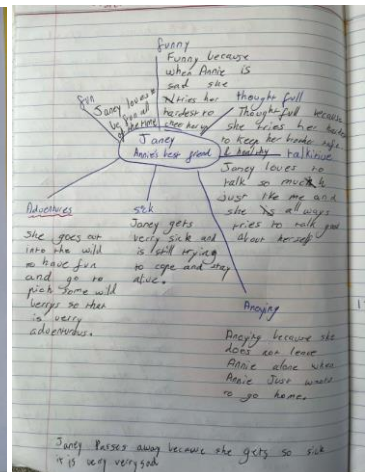 funny
Funny because
when Annie is
sad she
tries her
hardest to
cheer her up
fun
Janey loves to
be fun all
of the time
Janey
Annie's best friend
thoughtfull
Thoughtfull because
she tries her hardest
to keep her brother safe
& healthy
talkitive
Janey loves to
talk so much
Just like me and
she is allways
tries to talk good
about herself
Adventures
She goes out
into the wild
to have fun
and go to
pick some wild
berrys so that
is verry
adventurous.
sick
Janey gets
verry sick and
is still trying
to cope and stay
alive.
Anoying
Anoying because she
does not leave
Annie alone when
Annie Just wants
to go home.
Janey Passes away because she gets so sick
it is very verry sad